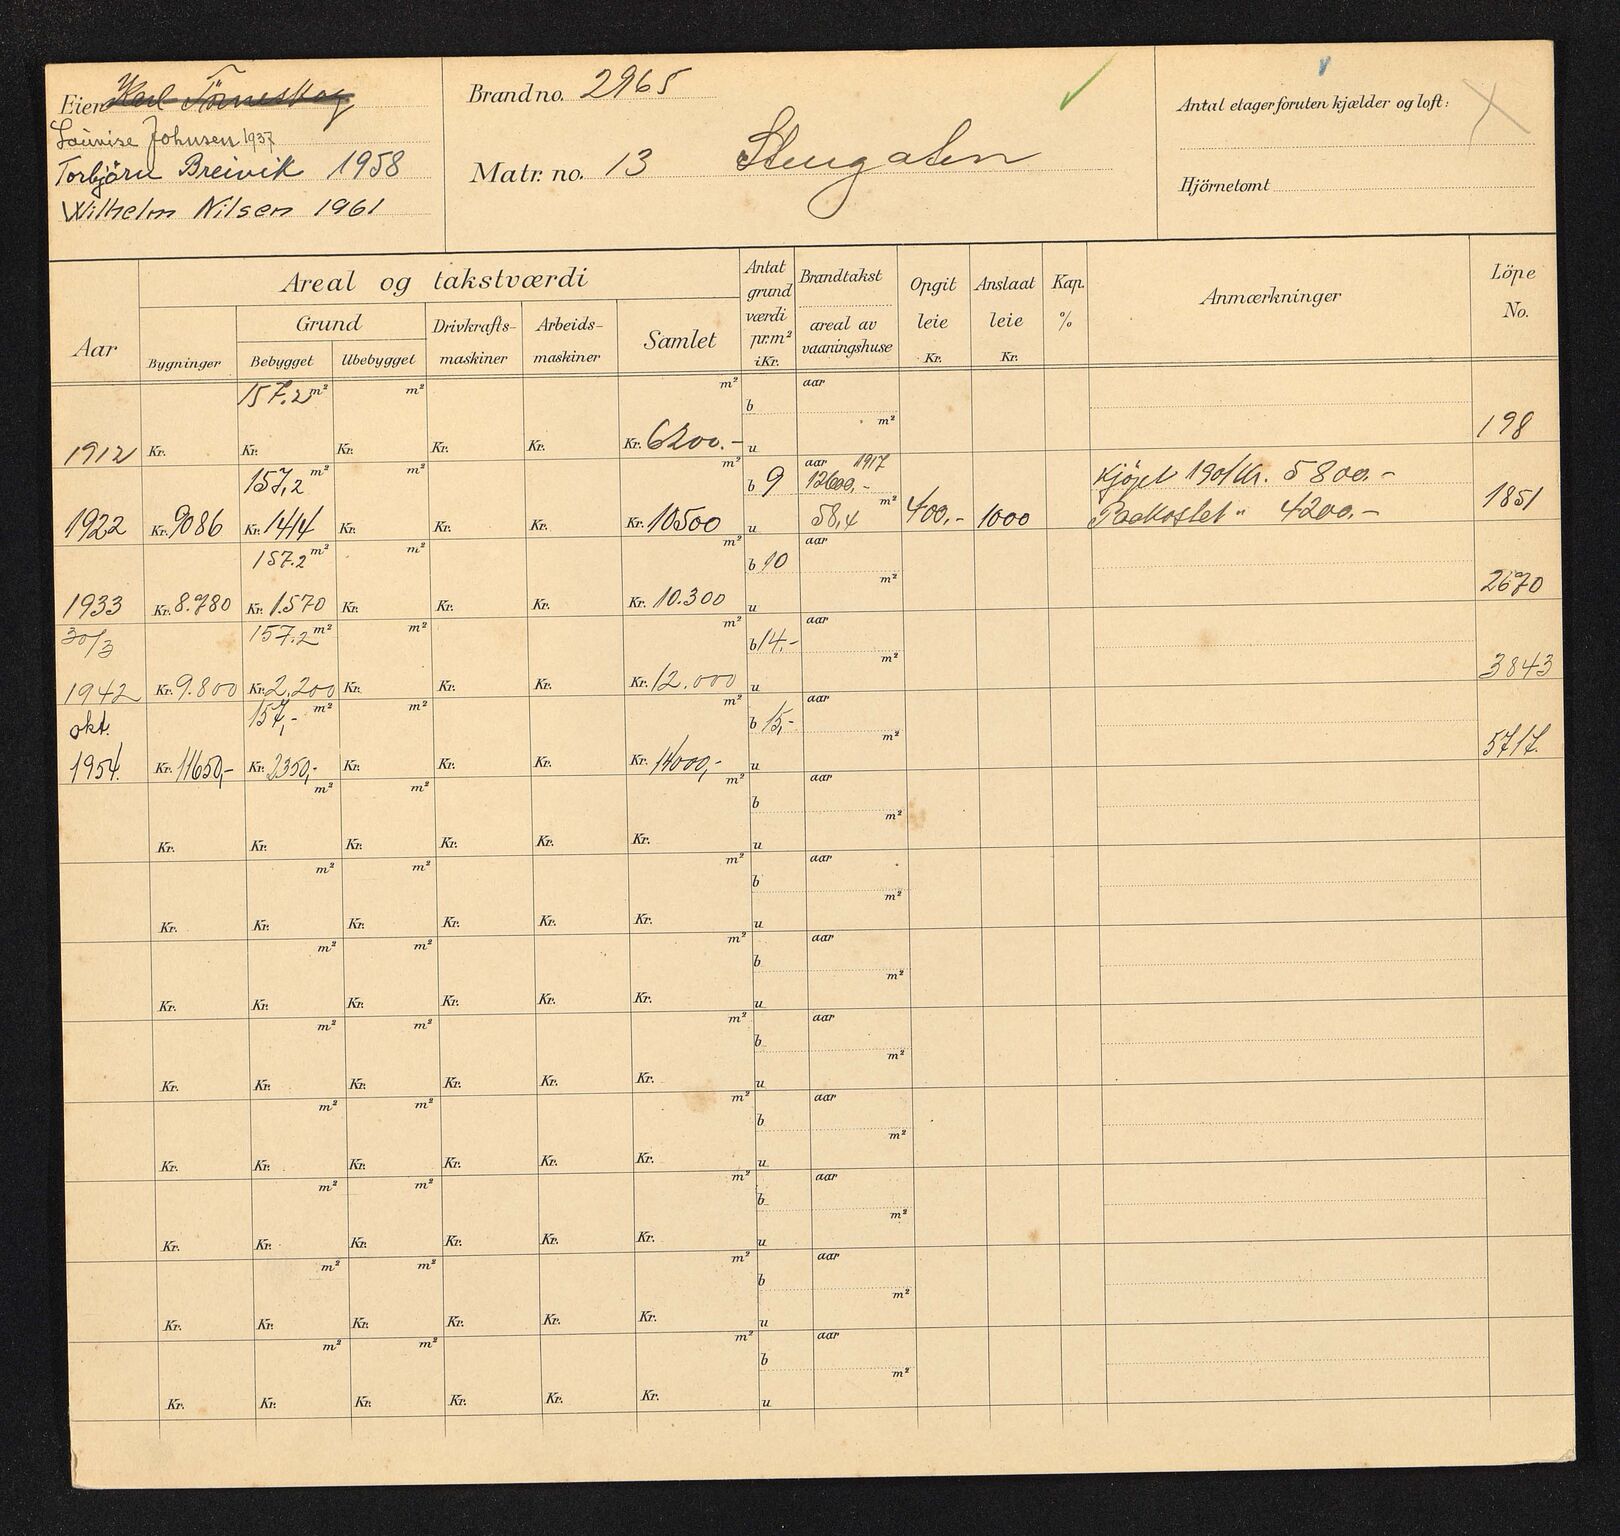 Eier Karl Tönneskog
Louise Johnsen 1937
Torbjörn Breivik 1958
Wilhelm Nilsen 1961
Brand no. 2965
Matr. no. 13 Stengaten
Antal etager foruten kjælder og loft:
Hjörnetomt
Aar
Areal og takstværdi
Bygninger
Grund
Bebygget Ubebygget
Drivkrafts-
maskiner
Arbeids-
maskiner
Samlet
Antat
grund
værdi
pr.m²
i Kr.
Brandtakst
areal av
vaaningshuse
Opgit
leie
Kr.
Anslaat
leie
Kr.
Kap.
%
Anmærkninger
Löpe
No.
157.2 m² m² m² aar
b
m²
1912 Kr. Kr. Kr. Kr. Kr. Kr. 6200.- u 198
157,2 m² m² m² b 9 aar 1917
12600,- Kjöpt 1901 Kr. 5800.-
m²
1922 Kr. 9086 Kr. 1414 Kr. Kr. Kr. Kr. 10500 u 58,4 400,- 1000 Paakostet " 4200.- 1851
157.2 m² m² m² b 10 aar
m²
1933 Kr. 8.780 Kr. 1.570 Kr. Kr. Kr. Kr. 10.300 u 2670
30/3 157.2 m² m² m² b 14.- aar
m²
1942 Kr. 9.800 Kr. 2.200 Kr. Kr. Kr. Kr. 12.000 u 3843
okt. 157,- m² m² m² b 15,- aar
m²
1954. Kr. 11650,- Kr. 2350,- Kr. Kr. Kr. Kr. 14000,- u 5717.
m² m² m² aar
b
m²
Kr. Kr. Kr. Kr. Kr. Kr. u
m² m² m² aar
b
m²
Kr. Kr. Kr. Kr. Kr. Kr. u
m² m² m² aar
b
m²
Kr. Kr. Kr. Kr. Kr. Kr. u
m² m² m² aar
b
m²
Kr. Kr. Kr. Kr. Kr. Kr. u
m² m² m² aar
b
m²
Kr. Kr. Kr. Kr. Kr. Kr. u
m² m² m² aar
b
m²
Kr. Kr. Kr. Kr. Kr. Kr. u
m² m² m² aar
b
m²
Kr. Kr. Kr. Kr. Kr. Kr. u
m² m² m² aar
b
m²
Kr. Kr. Kr. Kr. Kr. Kr. u